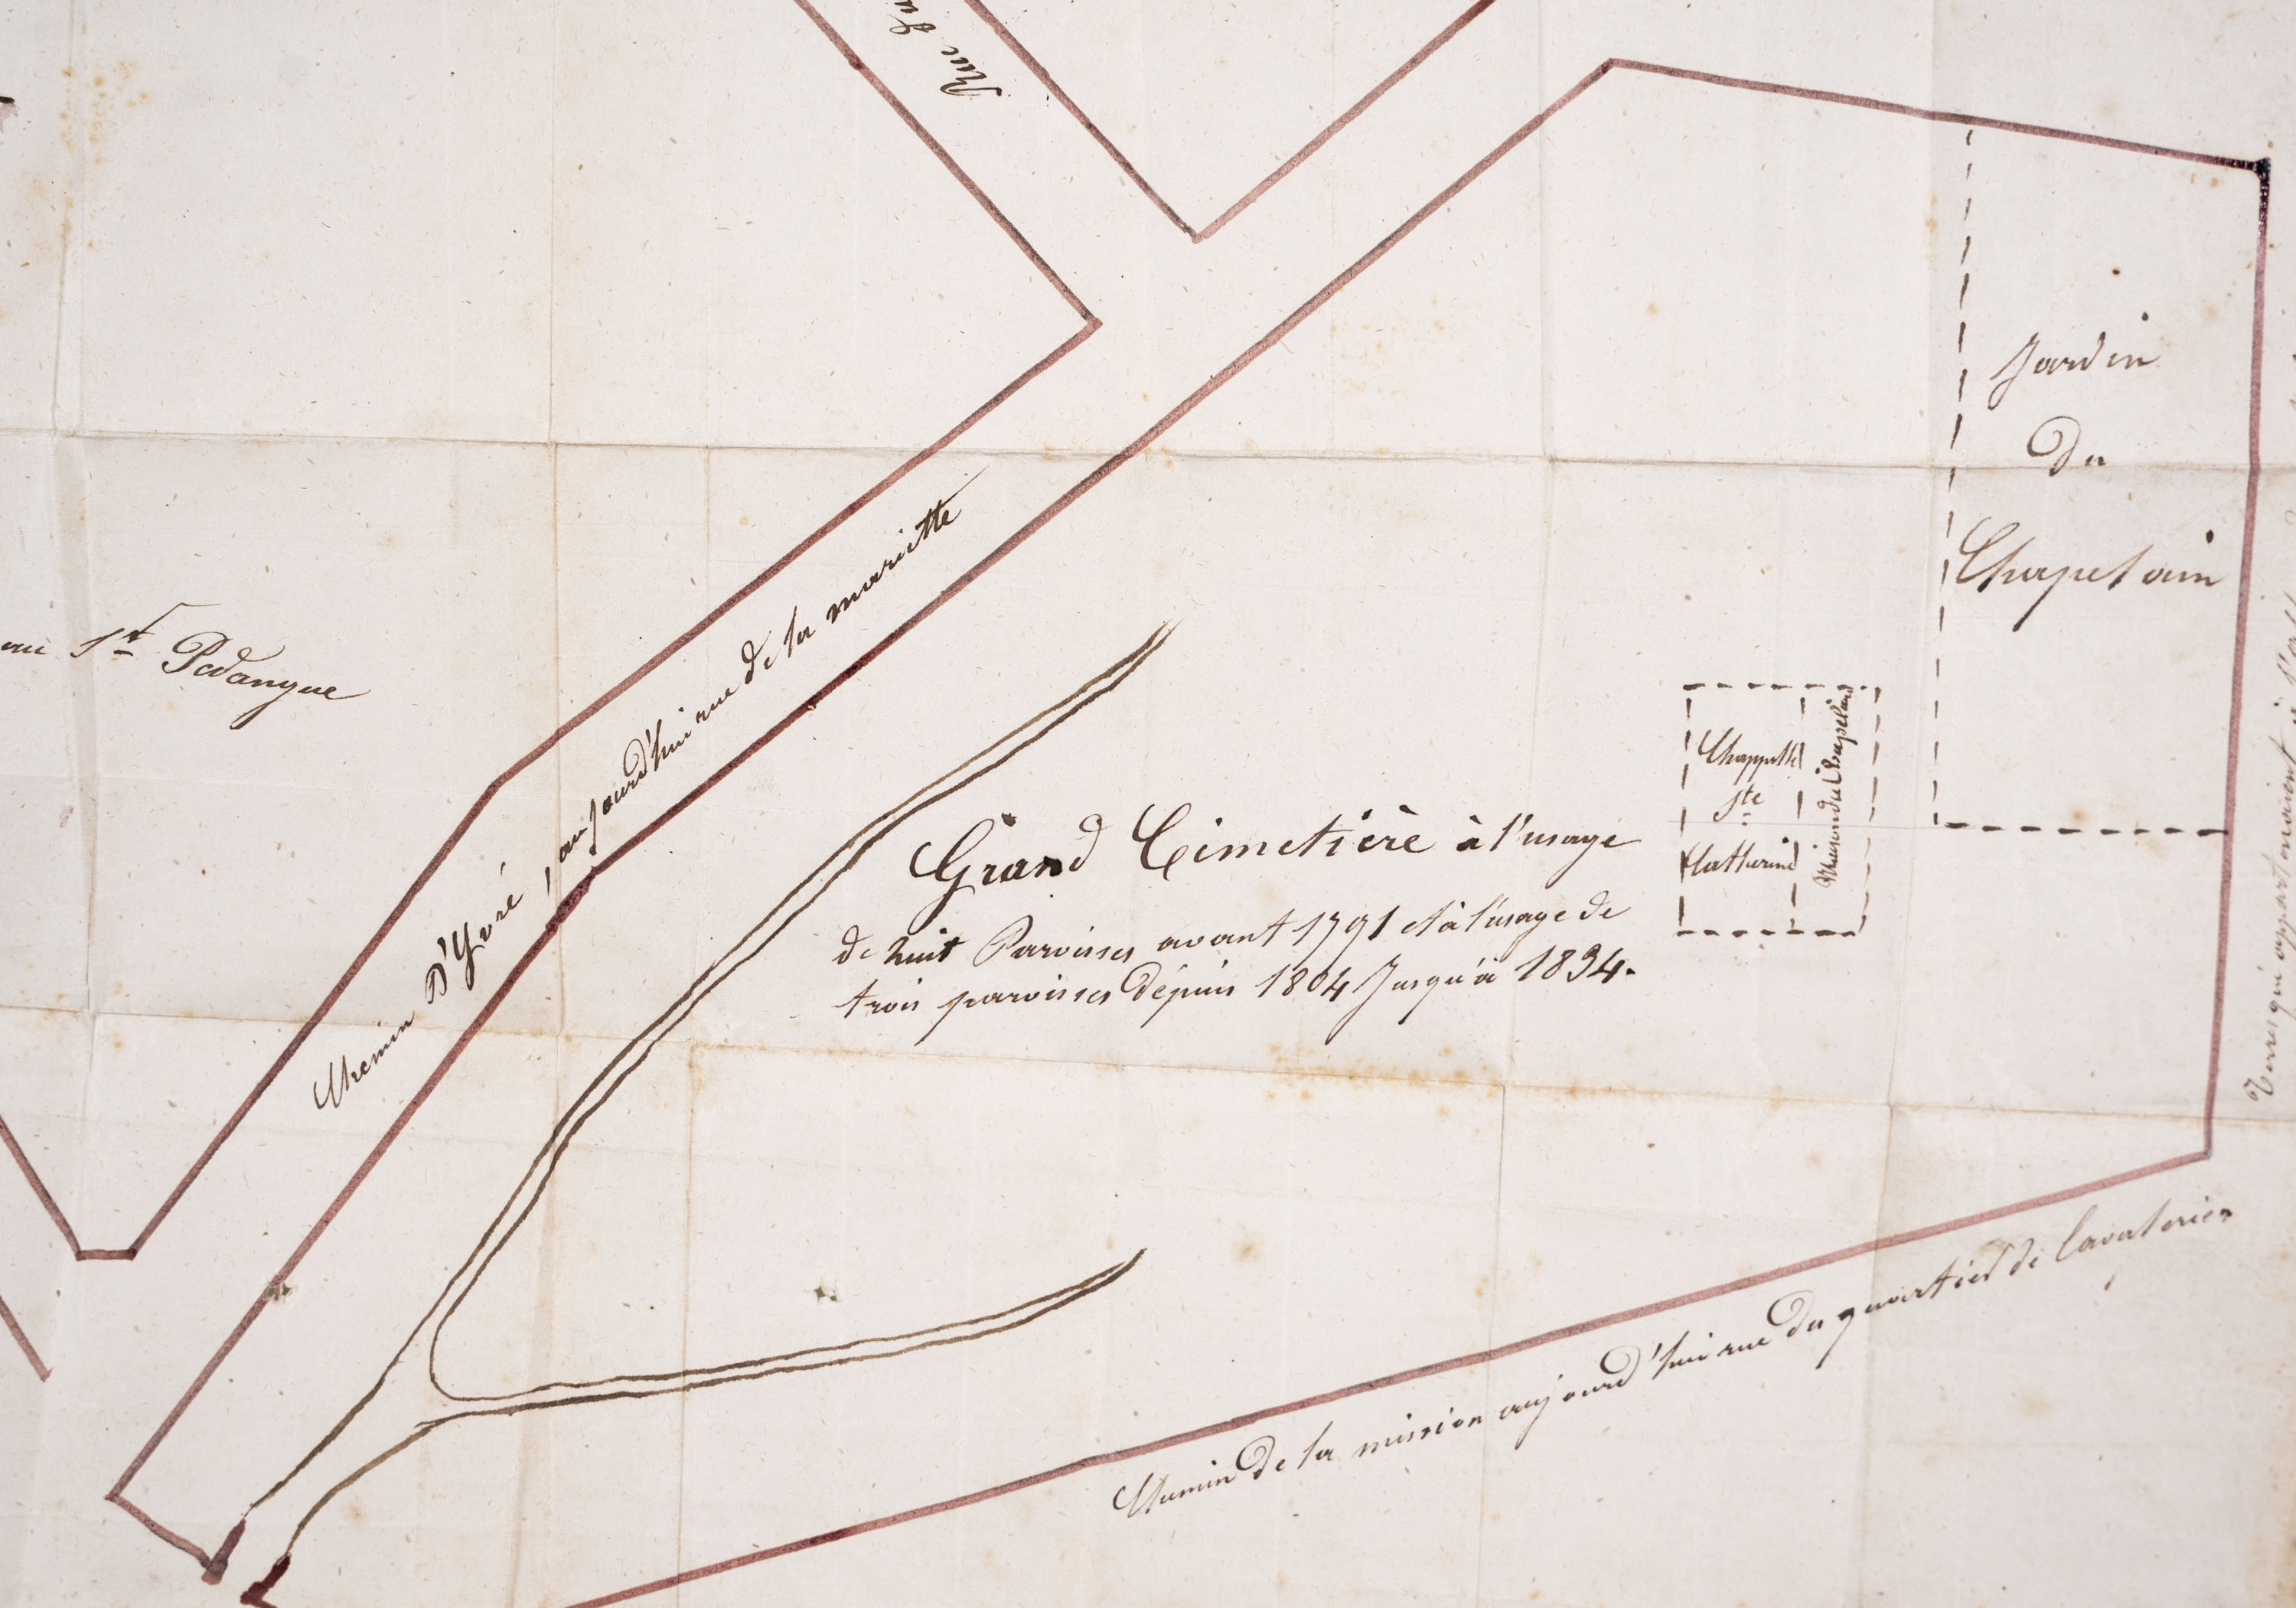 Rue
Jardin
du
Chapelain
St Pavangue
Chemin d'Yvré, aujourd'hui rue de la mariette
Chappelle
Ste
Catherine
Maison du Chapelain
Grand Cimetière à l'usage
de huit Paroisses avant 1791 et à l'usage de
trois paroisses dépuis 1804 Jusqu'à 1834.
Terres qui appartenaient à
Chemin de la mission aujourd'hui rue du quartier de Cavalerie